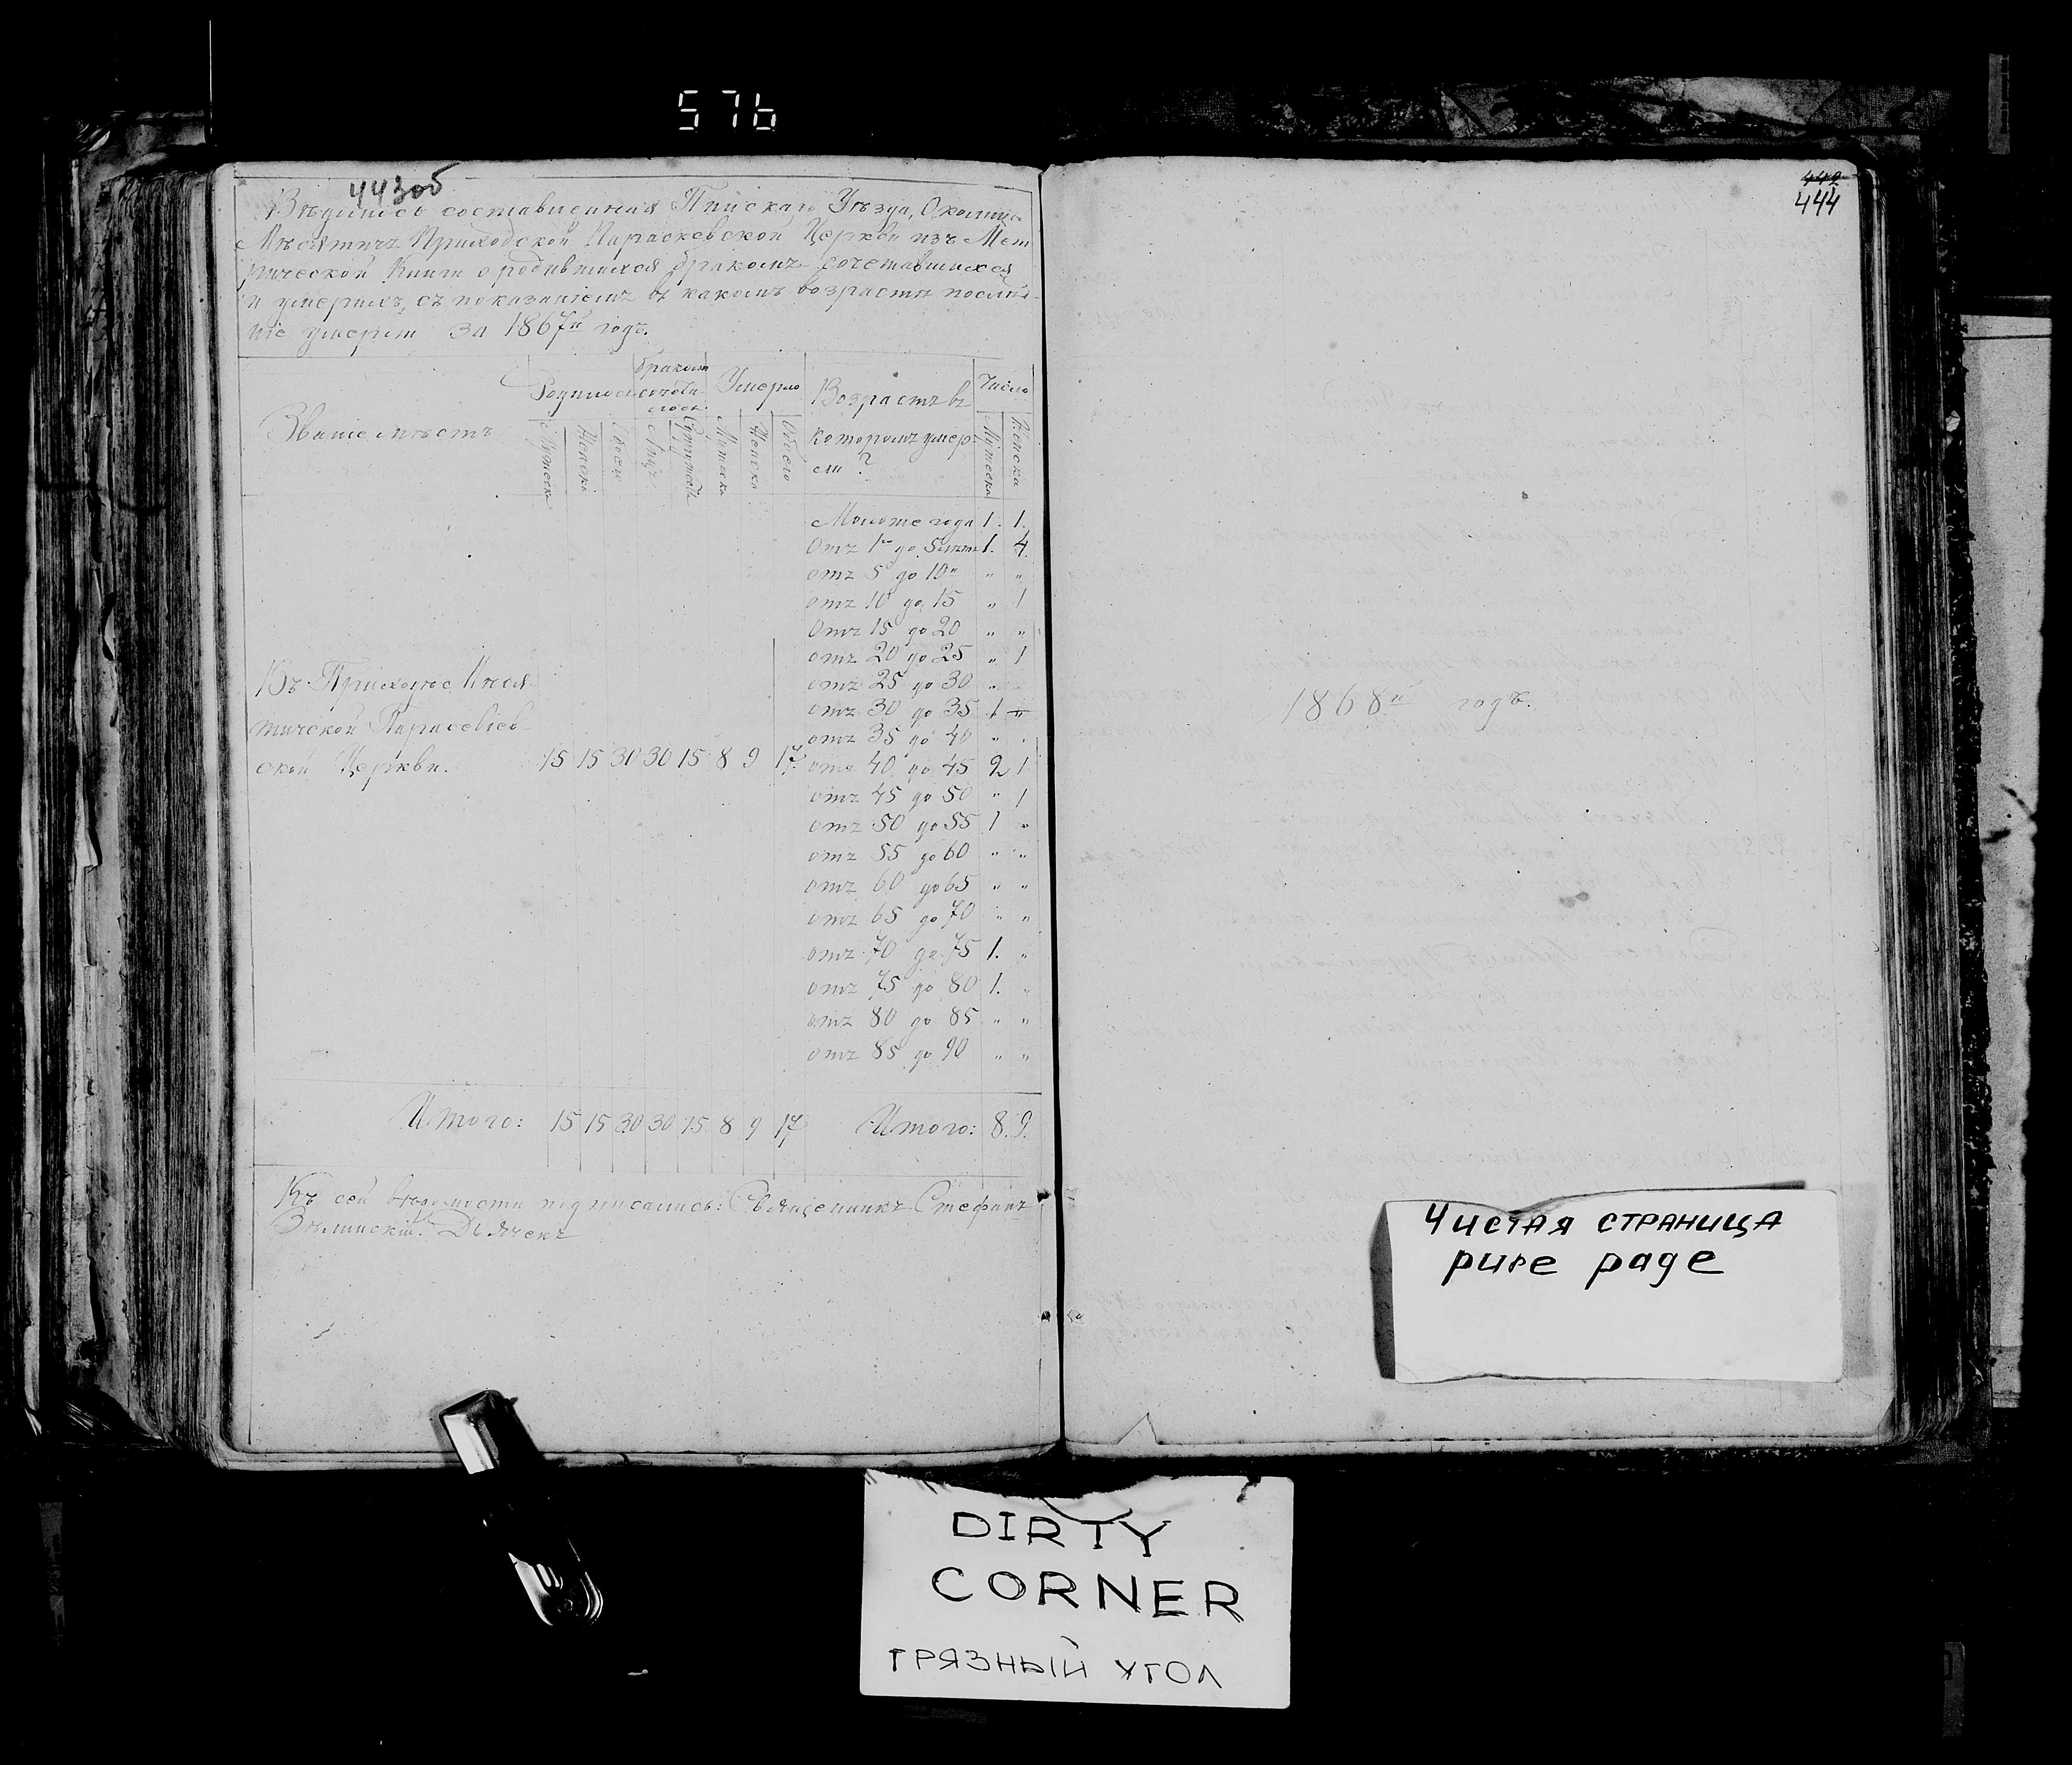 576
443об
Вѣдомость составленная Пинскаго Уѣзда, Околицы
Мѣсятичъ Приходской Параскевской Церкви изъ Мет
рической Книги о родившихся бракомъ сочетавшихся
и умершихъ, съ показаніемъ въ какомъ возрастѣ послѣд-
ніе умерли за 1867й годъ.
Званіе мѣстъ
Родилось
бракомъ сочета- лось
Умерло
Возрастъ въ
которомъ умер-
ли?
Число
Мужеска
Женска
Обоего
Лицъ
Супружествъ
Мужеска
Женска
Обоего
Мужеска
Женска
Моложе года 1. 1.
Отъ 1го до 5 лѣтъ 1. 4
отъ 5 до 10 " " "
отъ 10 до 15 " 1
Отъ 15 до 20 " "
отъ 20 до 25 " 1
отъ 25 до 30 "
отъ 30 до 35 1 "
отъ 35 до 40 " "
отъ 40 до 45 2 1
отъ 45 до 50 " 1
отъ 50 до 55 1 "
отъ 55 до 60 " "
отъ 60 до 65 " "
отъ 65 до 70 " "
отъ 70 до 75 1. "
отъ 75 до 80 1. "
отъ 80 до 85 " "
отъ 85 до 90 " "
Въ Приходѣ Мѣся
тичской Параскевіев
ской Церкви. 15 15 30 30 15 8 9 17
Итого: 15 15 30 30 15 8 9 17 Итого: 8. 9.
Къ сей вѣдомости подписались: Священникъ Стефанъ
Дьячекъ
442
444
1868й годъ.
Чистая страница
pure page
DIRTY
CORNER
ГРЯЗНЫЙ УГОЛ